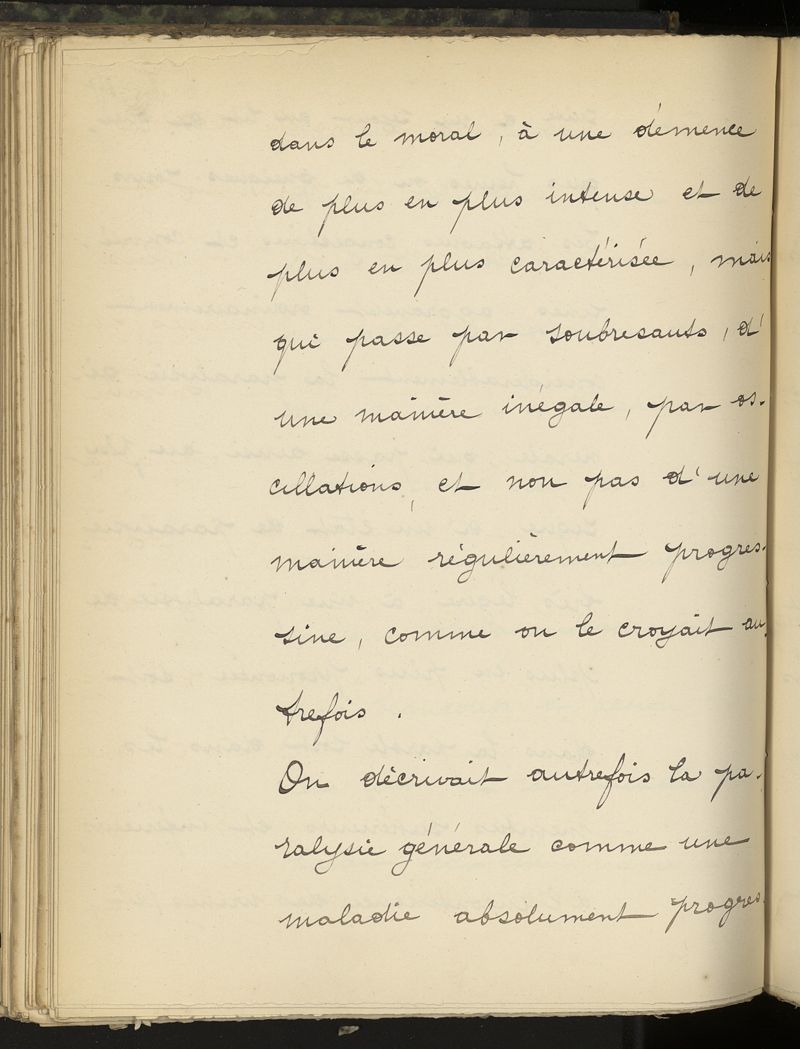 dans le moral, à une démence
de plus en plus intense et de
plus en plus caractérisée, mais
qui passe par soubresauts, d'
une manière inégale, par os-
cillations, et non pas d'une
manière régulièrement progres-
sive, comme on le croyait au
trefois.
On décrivait autrefois la pa-
ralysie générale comme une
maladie absolument progres-